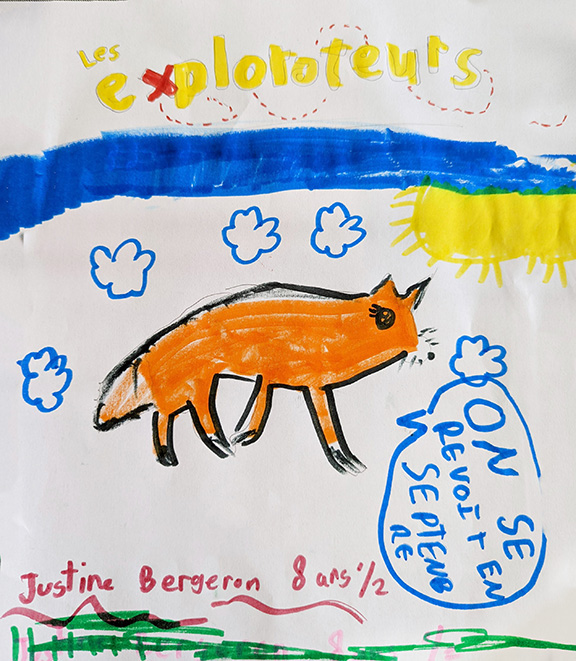 Les
exploroteurs
ON SE
REVOIT EN
SEPTENB
RE
Justine Bergeron 8 ans 1/2